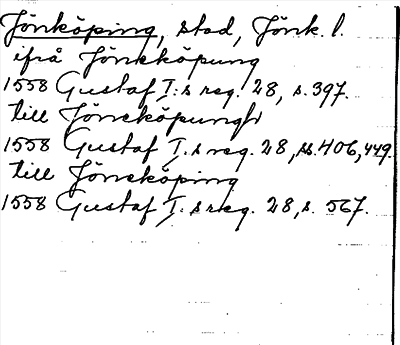 Jönköping, stad, Jönk. l.
ifrå Jöneköpung
1558 Gustaf I:s reg. 28, s. 397.
till Jöneköpungh
1558 Gustaf I:s reg. 28, ss. 406, 449.
till Jöneköping
1558 Gustaf I:s reg. 28, s. 567.